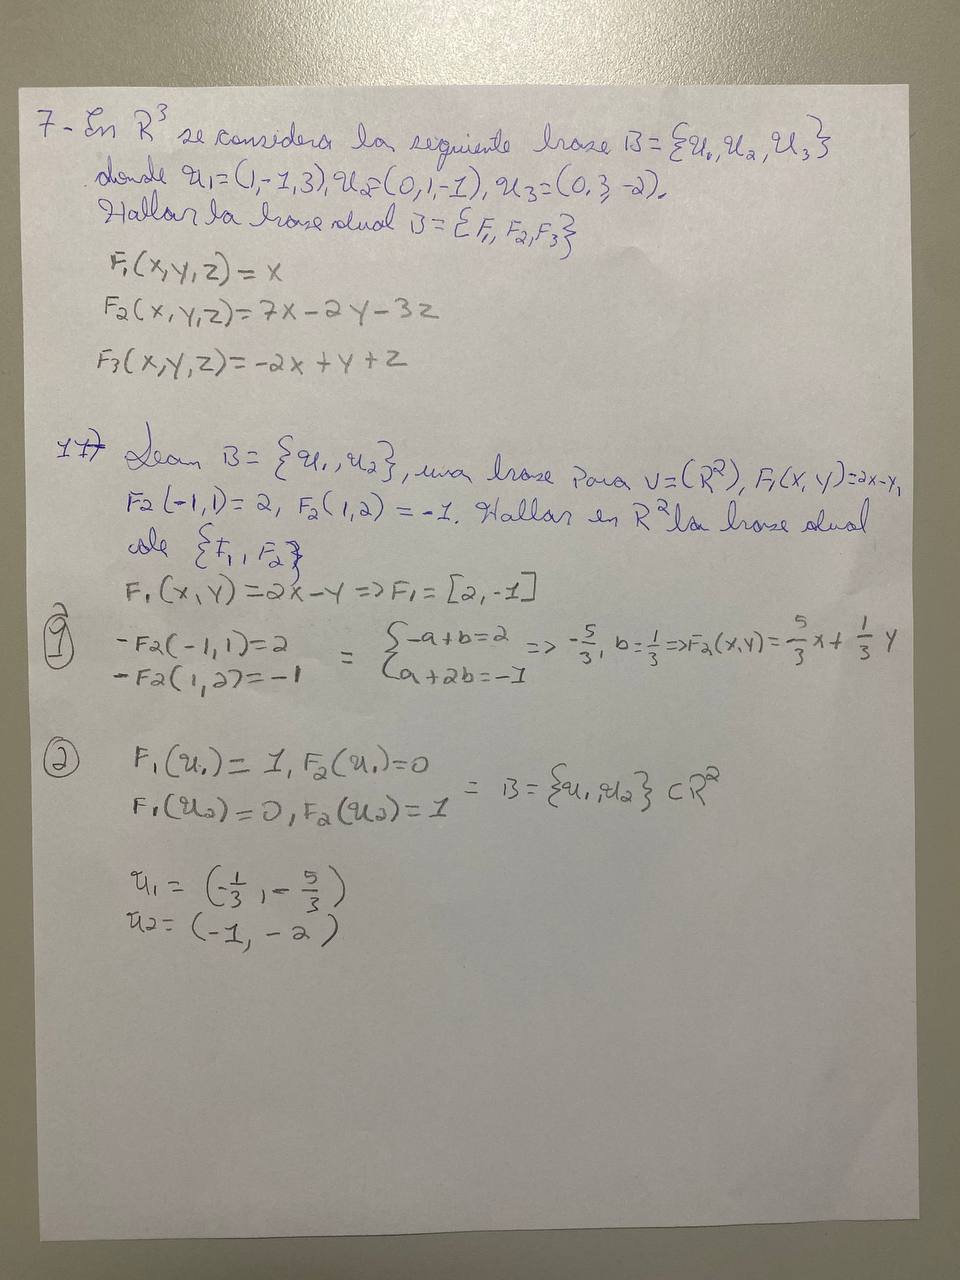 7- En R³ se considera la seguiente base B={u₁,u₂,u₃}
donde u₁=(1,-1,3), u₂=(0,1,-1), u₃=(0,3,-2).
Hallar la base dual B={F₁,F₂,F₃}
F₁(x,y,z)=x
F₂(x,y,z)=7x-2y-3z
F₃(x,y,z)=-2x+y+z
Sean B={u₁,u₂}, una base Para V=(R²), F₁(x,y)=2x-y,
F₂(-1,1)=2, F₂(1,2)=-1. Hallar en R² la base dual
de {F₁,F₂}
F₁(x,y)=2x-y=>F₁=[2,-1]
-F₂(-1,1)=2 = {-a+b=2 => -5/3, b=1/3=>F₂(x,y)=-5/3x+1/3y
-F₂(1,2)=-1 a+2b=-1
② F₁(u₁)=1, F₂(u₁)=0
F₁(u₂)=0, F₂(u₂)=1 = B={u₁,u₂}⊂R²
u₁=(-1/3,-5/3)
u₂=(-1,-2)